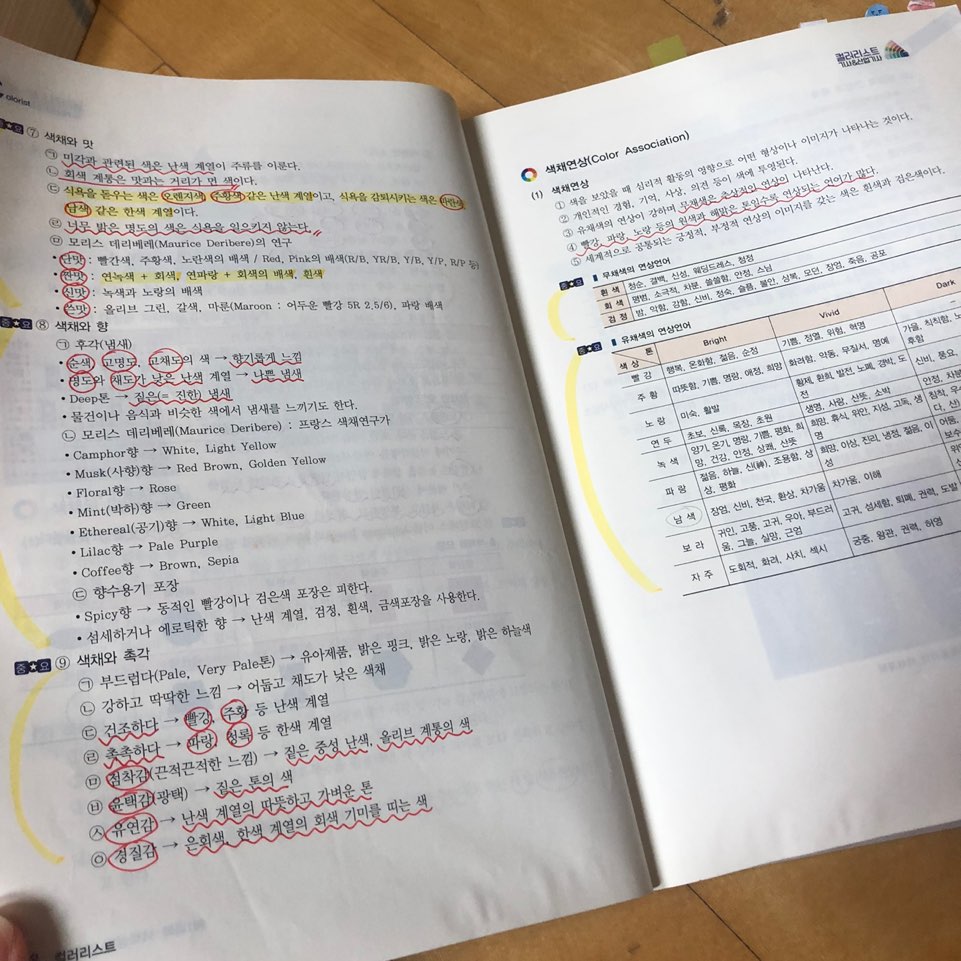 olorist
중★요 ⑦ 색채와 맛
㉠ 미각과 관련된 색은 난색 계열이 주류를 이룬다.
㉡ 회색 계통은 맛과는 거리가 먼 색이다.
㉢ 식욕을 돋우는 색은 오렌지색, 주황색 같은 난색 계열이고, 식욕을 감퇴시키는 색은 파란색,
남색 같은 한색 계열이다.
㉣ 너무 밝은 명도의 색은 식욕을 일으키지 않는다.
㉤ 모리스 데리베레(Maurice Deribere)의 연구
• 단맛 : 빨간색, 주황색, 노란색의 배색 / Red, Pink의 배색(R/B, YR/B, Y/B, Y/P, R/P 등)
• 짠맛 : 연녹색 + 회색, 연파랑 + 회색의 배색, 흰색
• 신맛 : 녹색과 노랑의 배색
• 쓴맛 : 올리브 그린, 갈색, 마룬(Maroon : 어두운 빨강 5R 2.5/6), 파랑 배색
중★요 ⑧ 색채와 향
㉠ 후각(냄새)
• 순색, 고명도, 고채도의 색 → 향기롭게 느낌
• 명도와 채도가 낮은 난색 계열 → 나쁜 냄새
• Deep톤 → 짙은(= 진한) 냄새
• 물건이나 음식과 비슷한 색에서 냄새를 느끼기도 한다.
㉡ 모리스 데리베레(Maurice Deribere) : 프랑스 색채연구가
• Camphor향 → White, Light Yellow
• Musk(사향)향 → Red Brown, Golden Yellow
• Floral향 → Rose
• Mint(박하)향 → Green
• Ethereal(공기)향 → White, Light Blue
• Lilac향 → Pale Purple
• Coffee향 → Brown, Sepia
㉢ 향수용기 포장
• Spicy향 → 동적인 빨강이나 검은색 포장은 피한다.
• 섬세하거나 에로틱한 향 → 난색 계열, 검정, 흰색, 금색포장을 사용한다.
중★요 ⑨ 색채와 촉각
㉠ 부드럽다(Pale, Very Pale톤) → 유아제품, 밝은 핑크, 밝은 노랑, 밝은 하늘색
㉡ 강하고 딱딱한 느낌 → 어둡고 채도가 낮은 색채
㉢ 건조하다 → 빨강, 주황 등 난색 계열
㉣ 촉촉하다 → 파랑, 청록 등 한색 계열
㉤ 점착감(끈적끈적한 느낌) → 짙은 중성 난색, 올리브 계통의 색
㉥ 윤택감(광택) → 짙은 톤의 색
㉦ 유연감 → 난색 계열의 따뜻하고 가벼운 톤
㉧ 경질감 → 은회색, 한색 계열의 회색 기미를 띠는 색
컬러리스트
컬러리스트
기사&산업기사
색채연상(Color Association)
(1) 색채연상
① 색을 보았을 때 심리적 활동의 영향으로 어떤 형상이나 이미지가 나타나는 것이다.
② 개인적인 경험, 기억, 사상, 의견 등이 색에 투영된다.
③ 유채색의 연상이 강하며 무채색은 추상적인 연상이 나타난다.
④ 빨강, 파랑, 노랑 등의 원색과 해맑은 톤일수록 연상되는 언어가 많다.
⑤ 세계적으로 공통되는 긍정적, 부정적 연상의 이미지를 갖는 색은 흰색과 검은색이다.
중★요 무채색의 연상언어
흰 색 청순, 결백, 신성, 웨딩드레스, 청정
회 색 평범, 소극적, 차분, 쓸쓸함, 안정, 스님
검 정 밤, 악함, 강함, 신비, 정숙, 슬픔, 불안, 상복, 모던, 장엄, 죽음, 공포
중★요 유채색의 연상언어
톤 색상 Bright Vivid Dark
빨 강 행복, 온화함, 젊음, 순정 기쁨, 정열, 위험, 혁명 –
주 황 따뜻함, 기쁨, 명랑, 애정, 희망 화려함, 약동, 무질서, 명예 가을, 칙칙함,
후함
노 랑 미숙, 활발 황제, 환희, 발전, 노폐, 경박, 도
전 신비, 풍요,
연 두 초보, 신록, 목장, 초원 생명, 사랑, 산뜻, 소박 안정, 차분
녹 색 양기, 온기, 명랑, 기쁨, 평화, 희
망, 건강, 안정, 상쾌, 산뜻 희망, 휴식, 위안, 지성, 고독, 생
명 침착,
파 랑 젊음, 하늘, 신(神), 조용함, 상
상, 평화 희망, 이상, 진리, 냉정, 젊음, 이
성 어둠,
남 색 장엄, 신비, 천국, 환상, 차가움 차가움, 이해
보 라 귀인, 고풍, 고귀, 우아, 부드러
움, 그늘, 실망, 근엄 고귀, 섬세함, 퇴폐, 권력, 도발
자 주 도회적, 화려, 사치, 섹시 궁중, 왕관, 권력, 허영